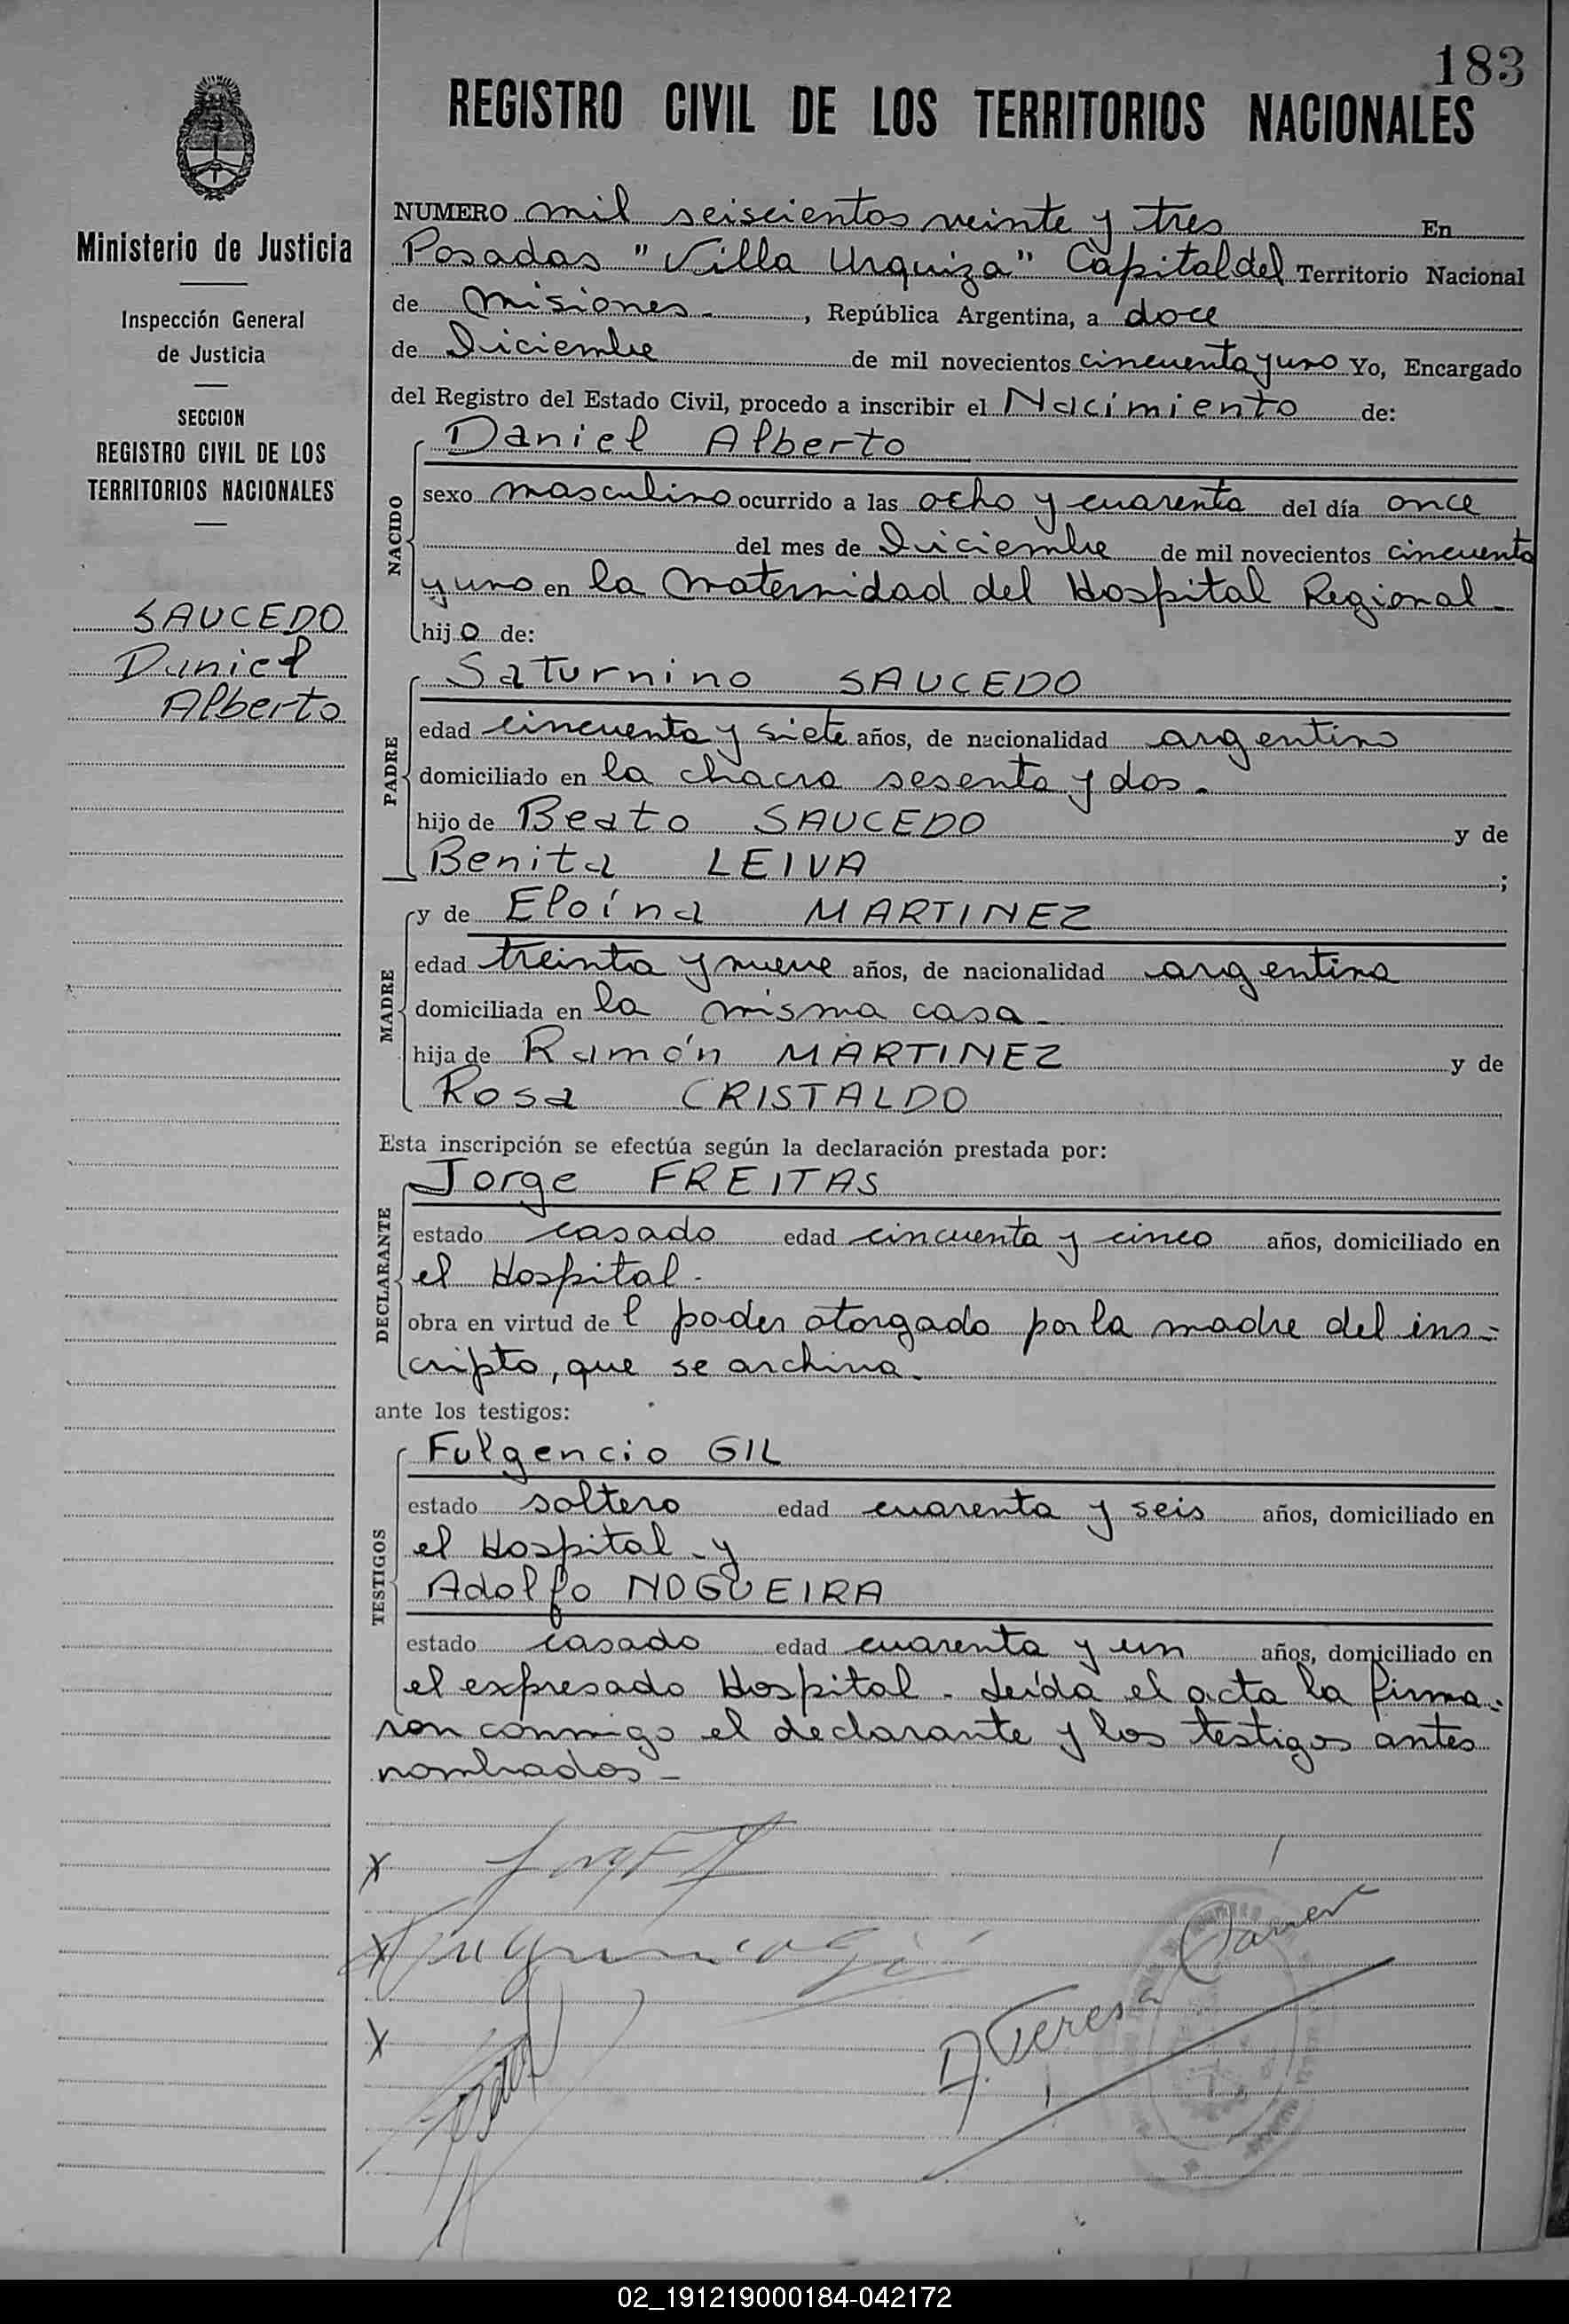 183
REGISTRO CIVIL DE LOS TERRITORIOS NACIONALES
Ministerio de Justicia
Inspección General
de Justicia
SECCION
REGISTRO CIVIL DE LOS
TERRITORIOS NACIONALES
SAUCEDO
Daniel
Alberto
NUMERO mil seiscientos veinte y tres En
Posadas "Villa Urquiza" Capital del Territorio Nacional
de Misiones-, República Argentina, a doce
de Diciembre de mil novecientos cincuenta y uno Yo, Encargado
del Registro del Estado Civil, procedo a inscribir el Nacimiento de:
NACIDO
Daniel Alberto
sexo masculino ocurrido a las ocho y cuarenta del día once
del mes de Diciembre de mil novecientos cincuenta
y uno en la Maternidad del Hospital Regional-
hijo de:
PADRE
Saturnino SAUCEDO
edad cincuenta y siete años, de nacionalidad argentino
domiciliado en la chacra sesenta y dos.
hijo de Beato SAUCEDO y de
Benita LEIVA ;
MADRE
y de Eloína MARTINEZ
edad treinta y nueve años, de nacionalidad argentina
domiciliada en la misma casa-
hija de Ramón MARTINEZ y de
Rosa CRISTALDO
Esta inscripción se efectúa según la declaración prestada por:
DECLARANTE
Jorge FREITAS
estado casado edad cincuenta y cinco años, domiciliado en
el Hospital-
obra en virtud de l poder otorgado por la madre del ins-
cripto, que se archiva.
ante los testigos:
TESTIGOS
Fulgencio GIL
estado soltero edad cuarenta y seis años, domiciliado en
el Hospital- y
Adolfo NOGUEIRA
estado casado edad cuarenta y un años, domiciliado en
el expresado Hospital- Leída el acta la firma-
ron conmigo el declarante y los testigos antes
nombrados-
x
x
x
D. Teresa
02_191219000184-042172